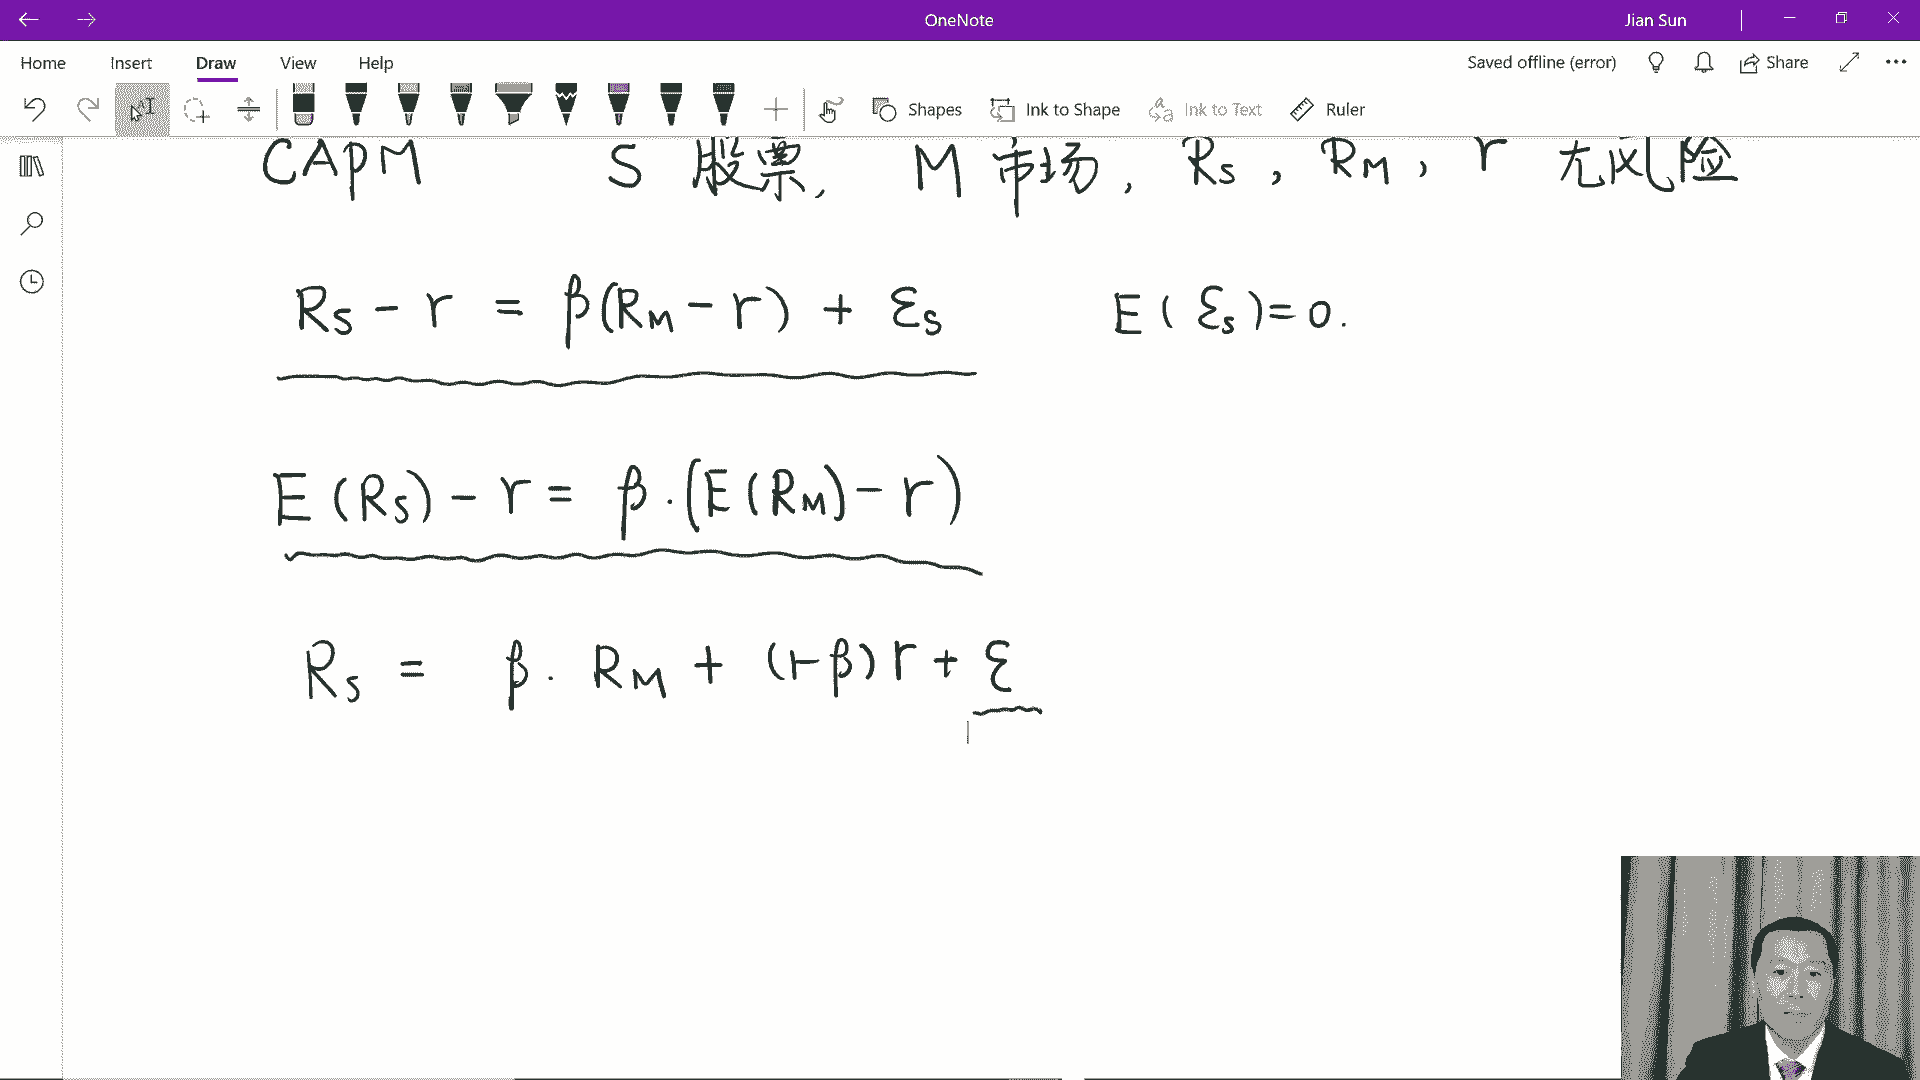 OneNote
Jian Sun
Home Insert Draw View Help
Saved offline (error) Share
Shapes Ink to Shape Ink to Text Ruler
CAPM S 股票, M 市场, Rs, RM, r 无风险
Rs - r = β(RM - r) + εs E(εs)=0.
E(Rs) - r = β·(E(RM) - r)
Rs = β· RM + (1-β)r + ε